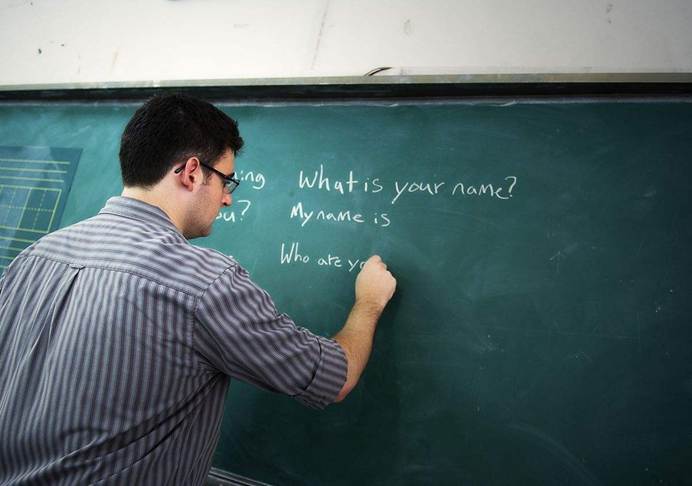 What is your name?
My name is
Who are